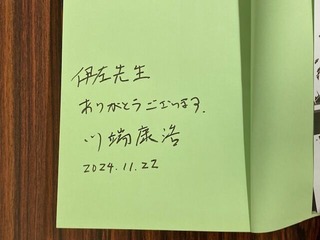 伊左先生
ありがとうございます.
川端康浩
2024.11.22